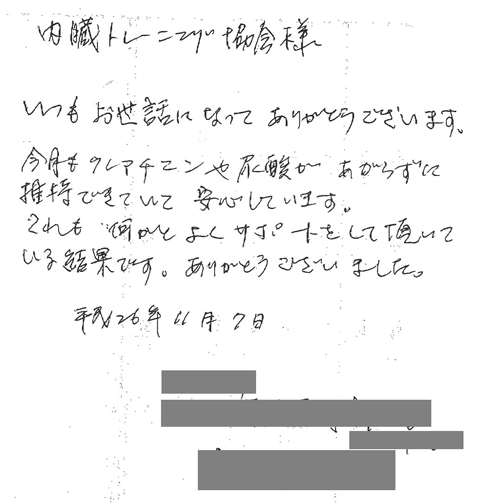 内臓トレーニング協会様
いつもお世話になってありがとうございます。
今月もクレアチニンや尿酸があがらずに
維持できていて安心しています。
これも何かとよくサポートをして頂いて
いる結果です。ありがとうございました。
平成26年11月7日